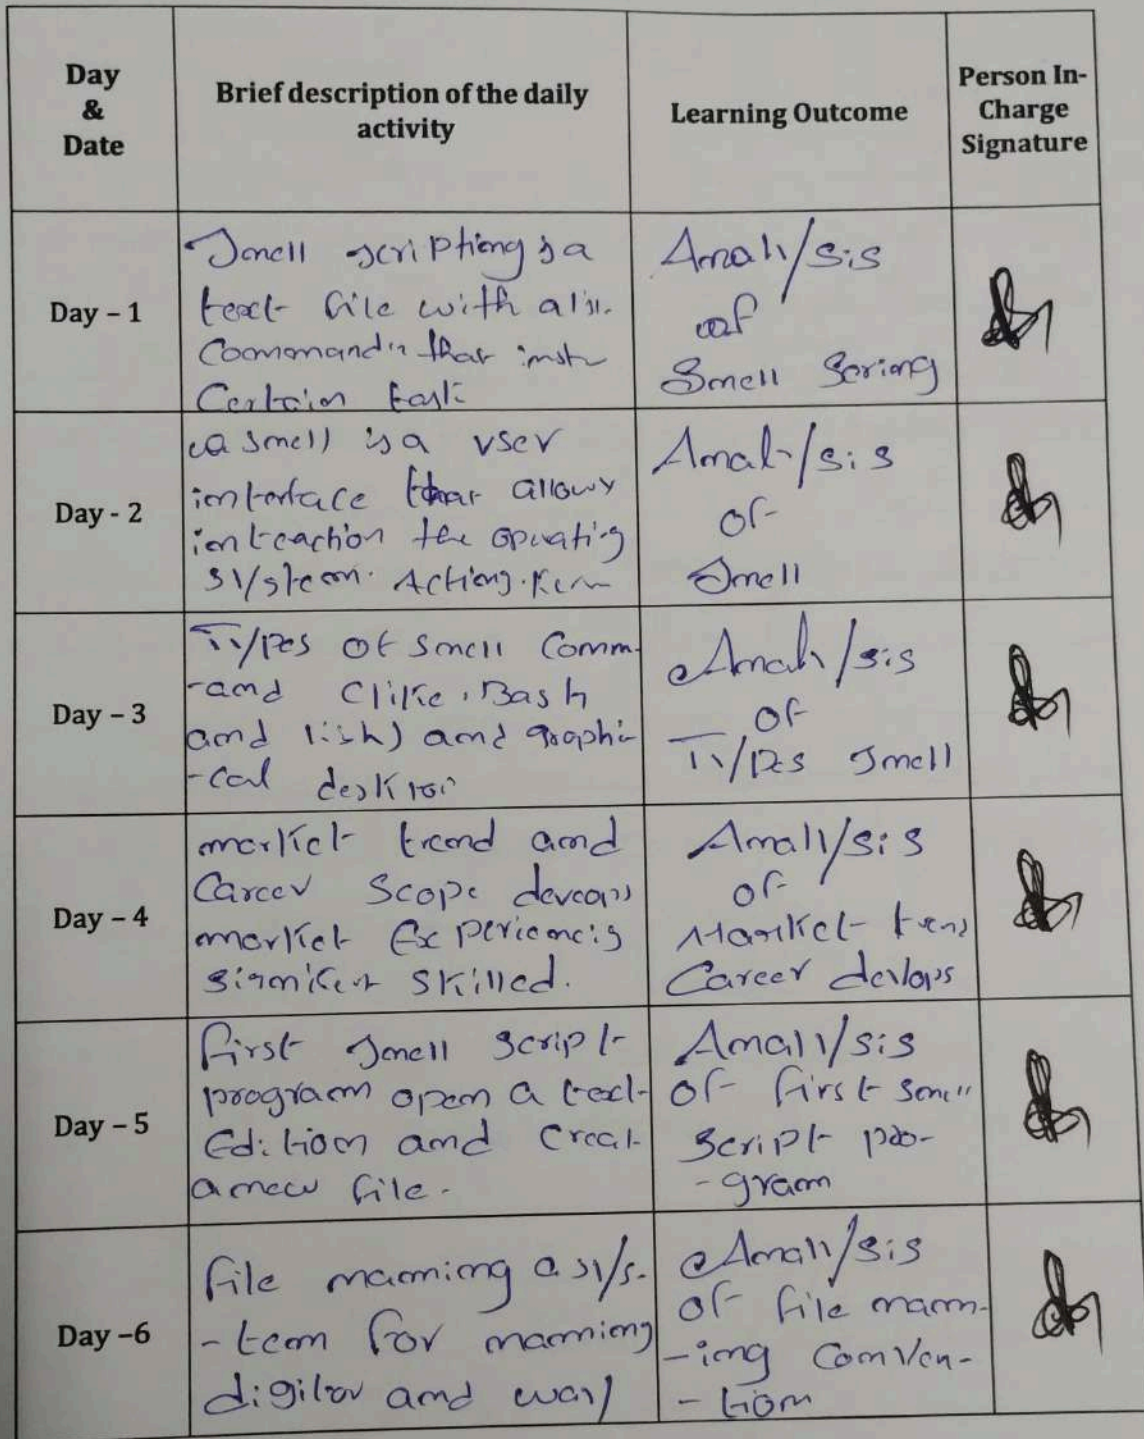 Day & Date
Brief description of the daily activity
Learning Outcome
Person In-Charge Signature
Day – 1
Smell scripting is a
text file with a lis.
Commands that inst
Certain task
Analysis
of
Smell Scring
Day - 2
a Smell is a user
interface that allows
inteaction the operating
System. Acting. Kern
Analysis
of
Smell
Day – 3
Types of Smell Comm
-and Clike, Bash
and lish) and graphi
-cal desktop
Analysis
of
Types Smell
Day – 4
market trend and
Career Scope
market Experiencis
skilled.
Analysis
of
Market trend
Career devlops
Day – 5
First Smell Script
program open a text
Edition and Creat
a new file.
Analysis
of first Smell
Script pro-
-gram
Day –6
file manning a sys-
-tem for manning
and way
Analysis
of file mann-
-ing Conven-
-tion